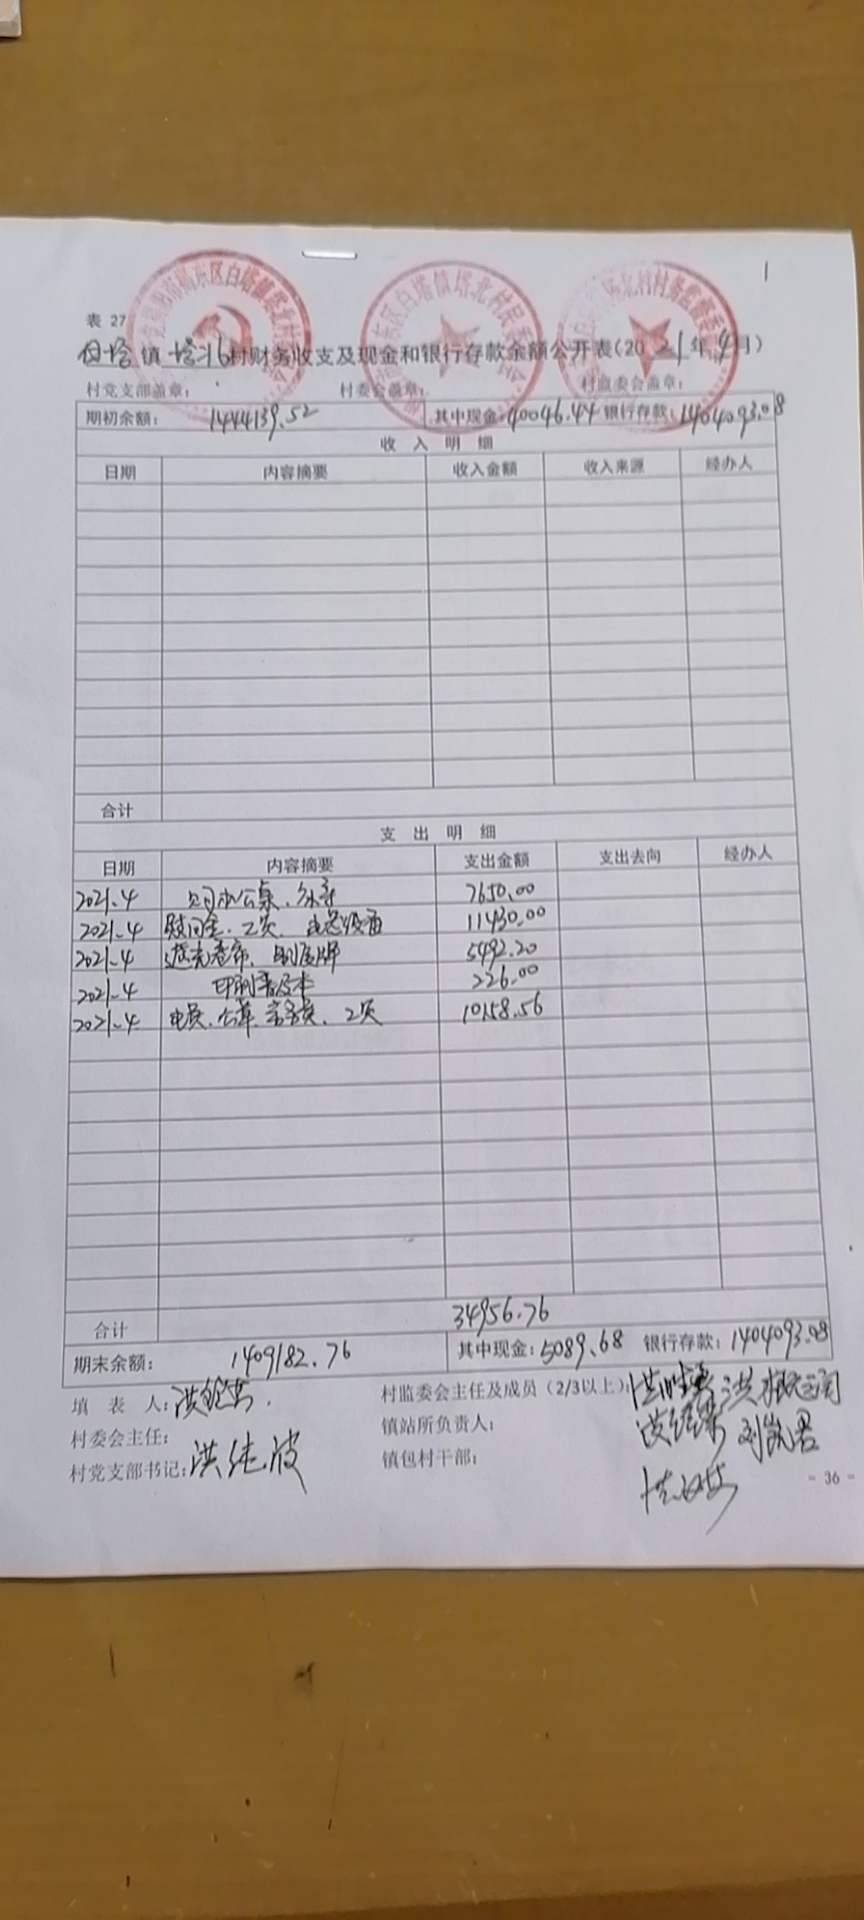 表 27
白塔镇塔北村财务收支及现金和银行存款余额公开表(2021年4月)
村党支部盖章: 村委会盖章: 村监委会盖章:
期初余额: 1444139.52 其中现金: 40046.44 银行存款: 1404093.08
收 入 明 细
日期 内容摘要 收入金额 收入来源 经办人
合计
支 出 明 细
日期 内容摘要 支出金额 支出去向 经办人
2021.4 7650.00
2021.4 慰问金、工资、 11430.00
2021.4 5492.20
2021.4 印刷 226.00
2021.4 电费、 工资 10158.56
合计 34956.76
期末余额: 1409182.76 其中现金: 5089.68 银行存款: 1404093.08
填 表 人: 村监委会主任及成员(2/3以上):
村委会主任: 镇站所负责人:
村党支部书记: 洪 镇包村干部:
- 36 -